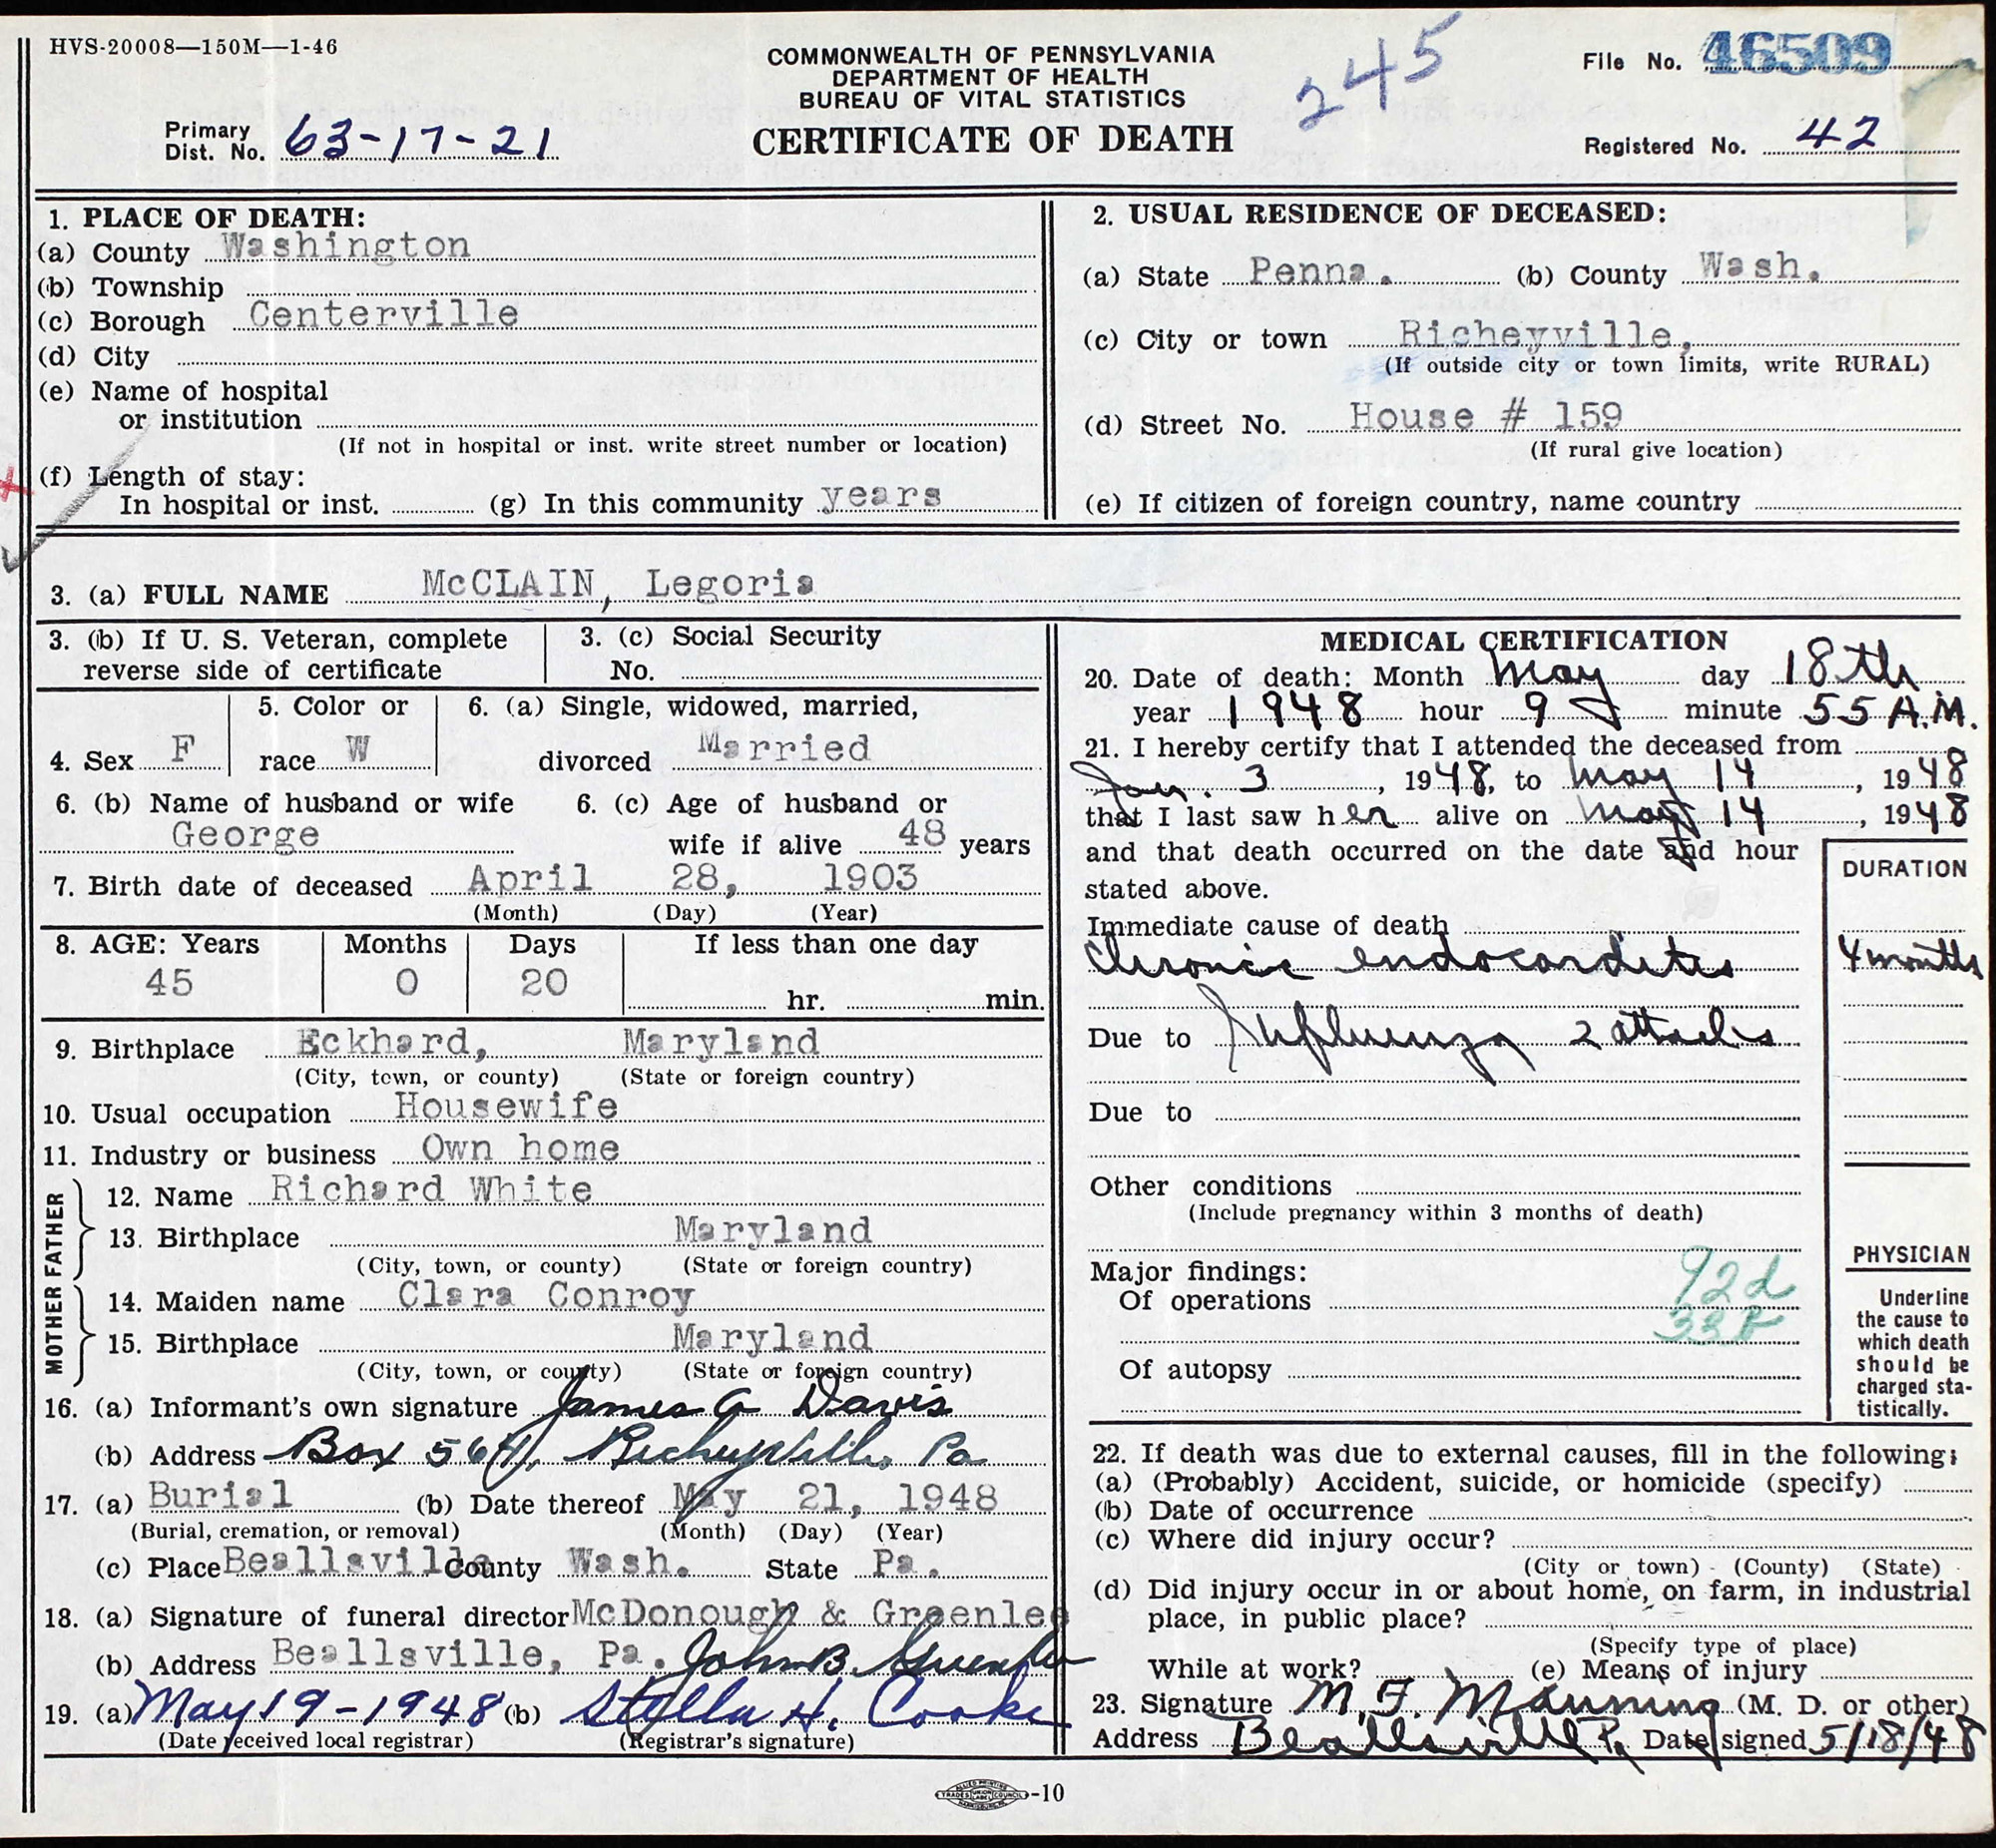 HVS-20008—150M—1-46
COMMONWEALTH OF PENNSYLVANIA
DEPARTMENT OF HEALTH
BUREAU OF VITAL STATISTICS
CERTIFICATE OF DEATH
245
File No. 46509
Primary
Dist. No. 63-17-21
Registered No. 42
1. PLACE OF DEATH:
(a) County Washington
(b) Township
(c) Borough Centerville
(d) City
(e) Name of hospital
or institution
(If not in hospital or inst. write street number or location)
(f) Length of stay:
In hospital or inst. (g) In this community years
2. USUAL RESIDENCE OF DECEASED:
(a) State Penna. (b) County Wash.
(c) City or town Richeyville,
(If outside city or town limits, write RURAL)
(d) Street No. House # 159
(If rural give location)
(e) If citizen of foreign country, name country
3. (a) FULL NAME McCLAIN, Legoria
3. (b) If U. S. Veteran, complete
reverse side of certificate
3. (c) Social Security
No.
4. Sex F
5. Color or
race W
6. (a) Single, widowed, married,
divorced Married
6. (b) Name of husband or wife
George
6. (c) Age of husband or
wife if alive 48 years
7. Birth date of deceased April 28, 1903
(Month) (Day) (Year)
8. AGE: Years Months Days If less than one day
45 0 20 hr. min.
9. Birthplace Eckhard, Maryland
(City, town, or county) (State or foreign country)
10. Usual occupation Housewife
11. Industry or business Own home
FATHER
12. Name Richard White
13. Birthplace Maryland
(City, town, or county) (State or foreign country)
MOTHER
14. Maiden name Clara Conroy
15. Birthplace Maryland
(City, town, or county) (State or foreign country)
16. (a) Informant's own signature James A Davis
(b) Address Box 564, Richeyville, Pa
17. (a) Burial (b) Date thereof May 21, 1948
(Burial, cremation, or removal) (Month) (Day) (Year)
(c) Place Beallsville County Wash. State Pa.
18. (a) Signature of funeral director McDonough & Greenlee
(b) Address Beallsville, Pa. John B Greenlee
19. (a) May 19-1948 (b) Stella H. Cooke
(Date received local registrar) (Registrar's signature)
MEDICAL CERTIFICATION
20. Date of death: Month May day 18th
year 1948 hour 9 minute 55 A.M.
21. I hereby certify that I attended the deceased from
Jan. 3, 1948, to May 14, 1948
that I last saw her alive on May 14, 1948
and that death occurred on the date and hour
stated above.
DURATION
Immediate cause of death
Chronic endocarditis 4 months
Due to Influenza 2 attacks
Due to
Other conditions
(Include pregnancy within 3 months of death)
Major findings:
Of operations
92d
33B
Of autopsy
PHYSICIAN
Underline
the cause to
which death
should be
charged sta-
tistically.
22. If death was due to external causes, fill in the following:
(a) (Probably) Accident, suicide, or homicide (specify)
(b) Date of occurrence
(c) Where did injury occur?
(City or town) (County) (State)
(d) Did injury occur in or about home, on farm, in industrial
place, in public place?
(Specify type of place)
While at work? (e) Means of injury
23. Signature M. F. Manning (M. D. or other)
Address Beallsville Pa Date signed 5/18/48
-10